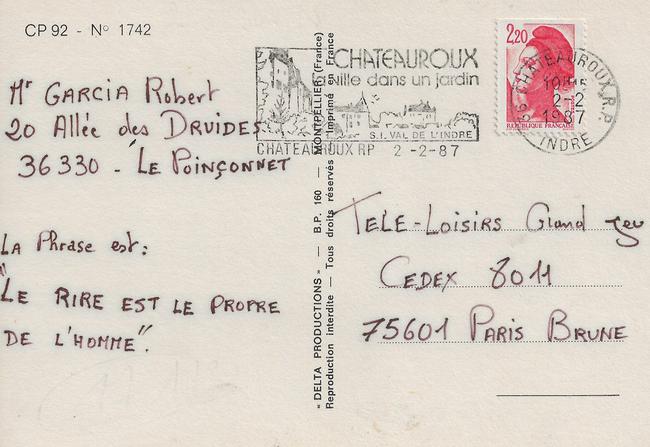 CP 92 - N° 1742
Mr GARCIA Robert
20 Allée des DRUIDES
36330 - LE POINÇONNET
LA Phrase est:
"LE RIRE EST LE PROPRE
DE L'HOMME".
« DELTA PRODUCTIONS » — B.P. 160 — MONTPELLIER (France)
Reproduction interdite — Tous droits réservés — Imprimé en France
CHATEAUROUX
ville dans un jardin
S.I. VAL DE L'INDRE
CHATEAUROUX RP 2-2-87
2,20
REPUBLIQUE FRANÇAISE
36 CHATEAUROUX R.P.
2-2
1987
INDRE
TELE-LOISIRS Grand jeu
CEDEX 8011
75601 PARIS BRUNE